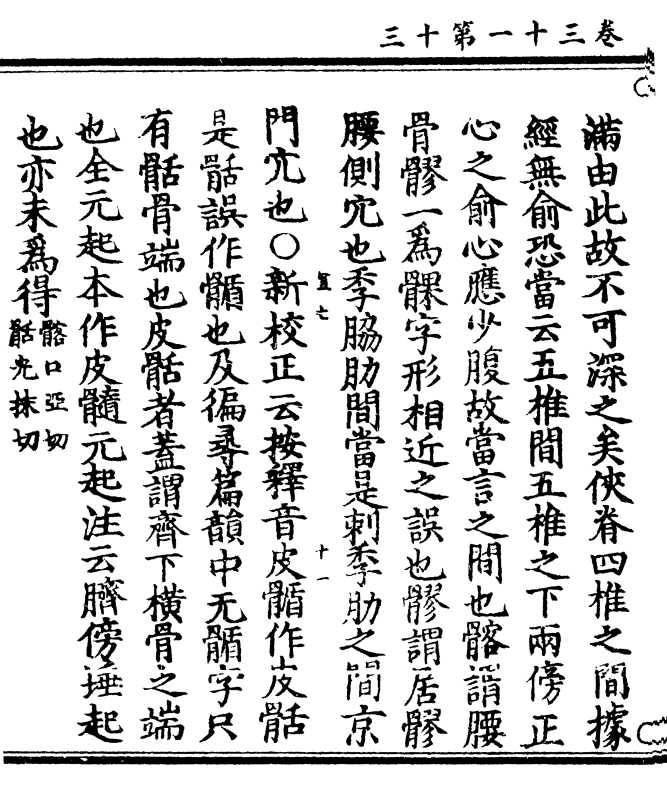 卷三十一第十三
滿由此故不可深之矣俠脊四椎之間據
經無俞恐當云五椎間五椎之下兩傍正
心之俞心應少腹故當言之間也髂謂腰
骨髎一爲髁字形相近之誤也髎謂居髎
腰側宂也季脇肋間當是刺季肋之間京
門宂也〇新校正云按釋音皮䯏作皮骺
是骺誤作䯏也及徧尋篇韻中无䯏字只
有骺骨端也皮骺者蓋謂齊下橫骨之端
也全元起本作皮髓元起注云臍傍埵起
也亦未爲得髂口亞切骺光抹切
十一